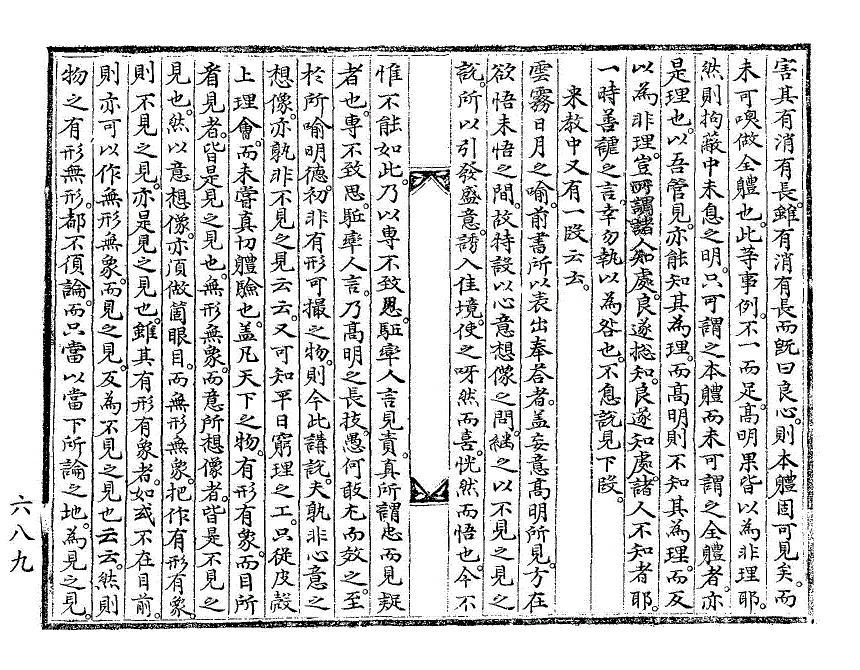 害其有消有長。雖有消有長而旣曰良心。則本體固可見矣。而
未可喚做全體也。此等事例。不一而足。高明果皆以爲非理耶。
然則拘蔽中未息之明。只可謂之本體。而未可謂之全體者。亦
是理也。以吾管見。亦能知其爲理。而高明則不知其爲理。而反
以爲非理。豈所謂諸人知處。良遂摠知。良遂知處。諸人不知者耶。
一時善謔之言。幸勿執以爲咎也。不息說見下段。
來敎中又有一段云云。
雲霧日月之喩。前書所以表出奉答者。盖妄意高明所見。方在
欲悟未悟之間。故特設以心意想像之問。繼之以不見之見之
說。所以引發盛意。誘入佳境。使之呀然而喜。恍然而悟也。今不
惟不能如此。乃以專不致思。駈率人言見責。眞所謂忠而見疑
者也。專不致思。駈率人言。乃高明之長技。愚何敢尤而效之。至
於所喩明德。初非有形可撮之物。則今此講說。夫孰非心意之
想像。亦孰非不見之見云云。又可知平日窮理之工。只從皮殼
上理會。而未嘗眞切體驗也。盖凡天下之物。有形有象。而目所
看見者。皆是見之見也。無形無象。而意所想像者。皆是不見之
見也。然以意想像。亦須做箇眼目。而無形無象。把作有形有象。
則不見之見。亦是見之見也。雖其有形有象者。如或不在目前。
則亦可以作無形無象。而見之見。反爲不見之見也云云。然則
物之有形無形。都不須論。而只當以當下所論之地。爲見之見。
六八九